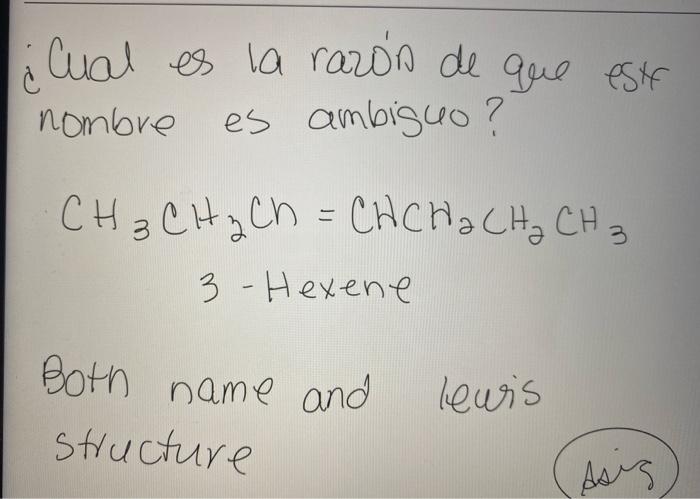 ¿Cual es la razón de que este
nombre es ambiguo?
CH3CH2Ch = CHCH2CH2CH3
3 - Hexene
Both name and lewis
structure
Asig